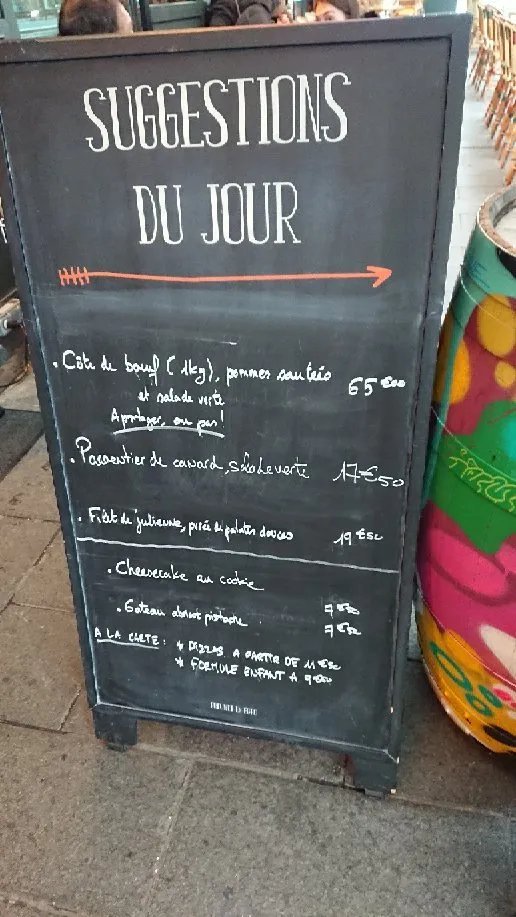 SUGGESTIONS
DU JOUR
. Côte de bœuf (1kg), pommes sautées 65€00
et salade verte
A partager, ou pas!
. Parmentier de canard, salade verte 17€50
. Filet de julienne, purée de patates douces 19€50
. Cheesecake au cookie 7€50
. Gateau abricot pistache 7€50
A LA CARTE: * PIZZAS A PARTIR DE 11€50
* FORMULE ENFANT A